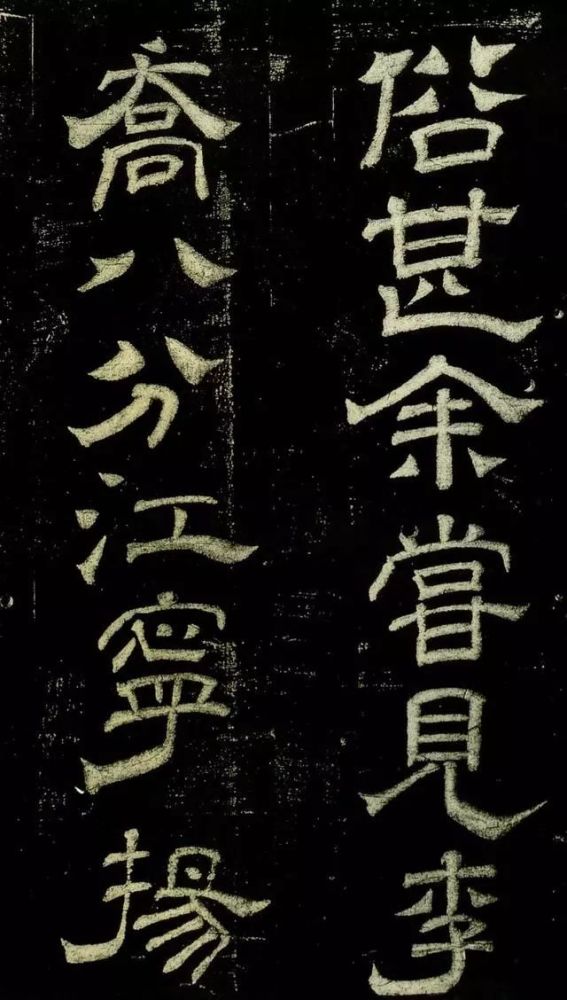 俗甚余嘗見李
喬八分江寧揚